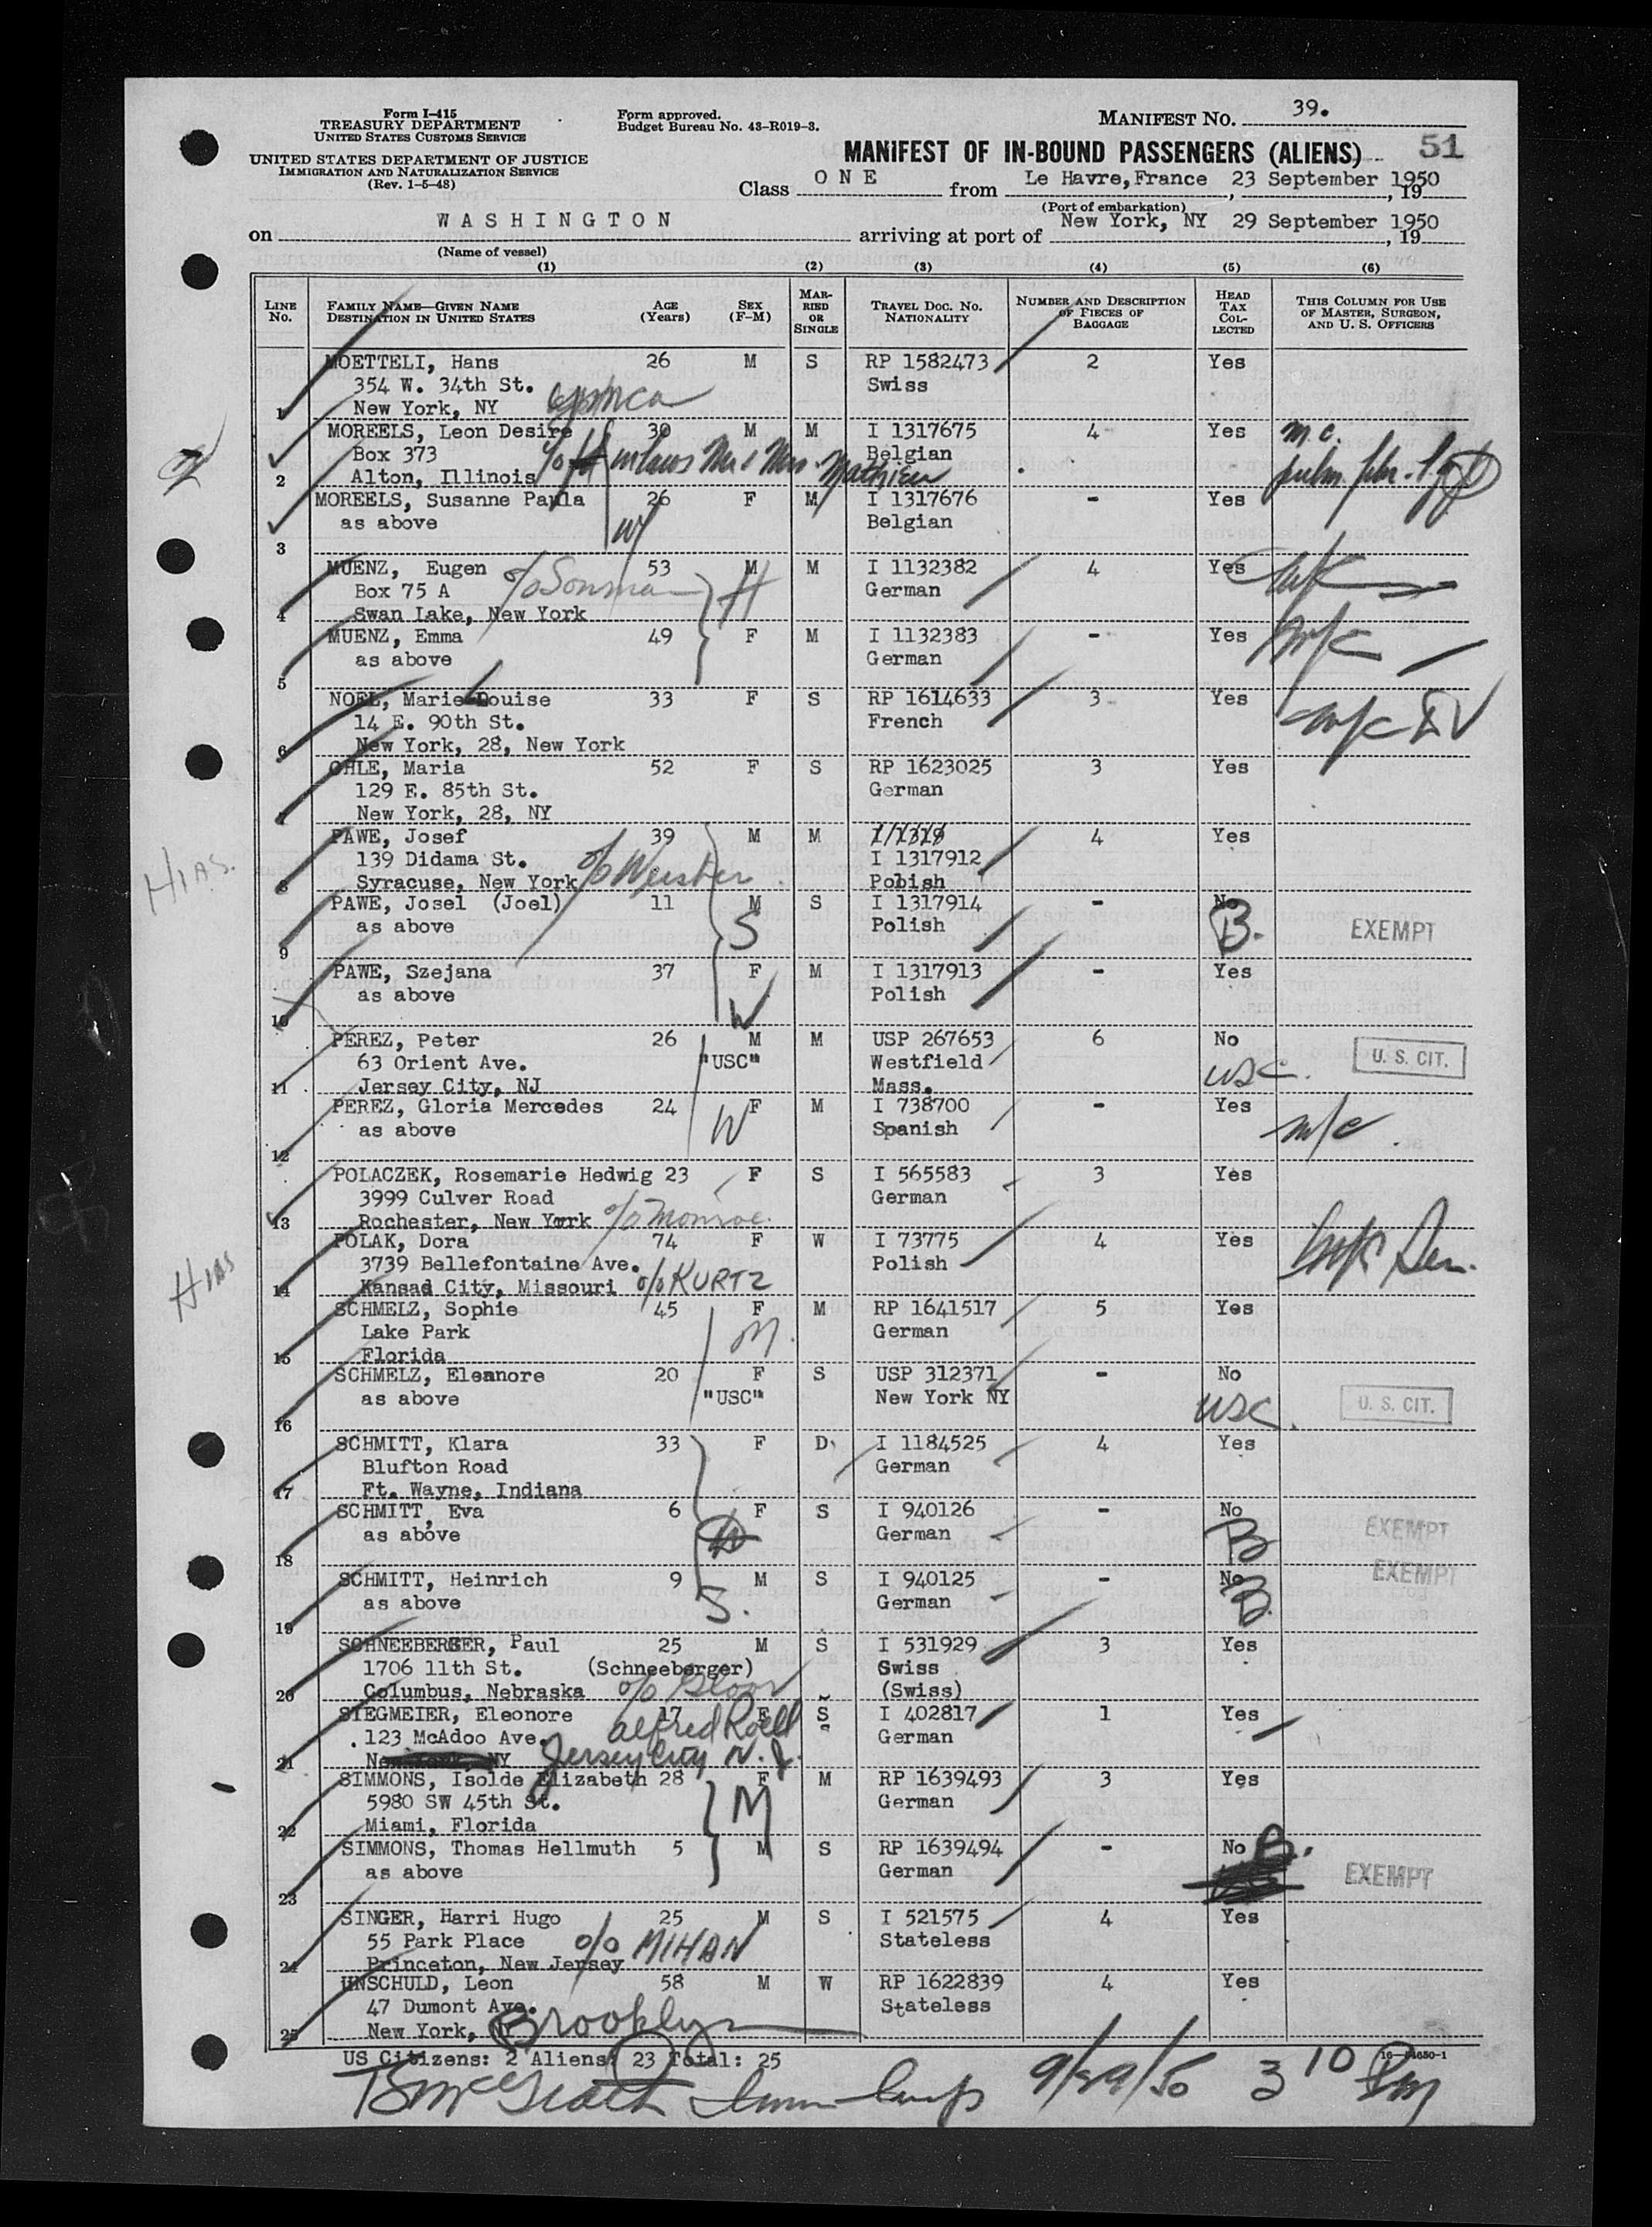 Form I-415
TREASURY DEPARTMENT
UNITED STATES CUSTOMS SERVICE
UNITED STATES DEPARTMENT OF JUSTICE
IMMIGRATION AND NATURALIZATION SERVICE
(Rev. 1-5-48)
Form approved.
Budget Bureau No. 43-R019-3.
MANIFEST NO. 39.
MANIFEST OF IN-BOUND PASSENGERS (ALIENS) 51
Class ONE from Le Havre, France 23 September 1950, 19
(Port of embarkation)
on WASHINGTON arriving at port of New York, NY 29 September 1950, 19
(Name of vessel)
(1) (2) (3) (4) (5) (6)
LINE NO. FAMILY NAME—GIVEN NAME DESTINATION IN UNITED STATES AGE (YEARS) SEX (F-M) MARRIED OR SINGLE TRAVEL DOC. NO. NATIONALITY NUMBER AND DESCRIPTION OF PIECES OF BAGGAGE HEAD TAX COLLECTED THIS COLUMN FOR USE OF MASTER, SURGEON, AND U. S. OFFICERS
MOETTELI, Hans 26 M S RP 1582473 2 Yes
354 W. 34th St. Swiss
1 New York, NY ymca
MOREELS, Leon Desire 30 M M I 1317675 4 Yes m.c.
Box 373 Belgian
2 Alton, Illinois c/o inlaws Mr & Mrs. Mathieu
MOREELS, Susanne Paula 26 F M I 1317676 - Yes
as above W Belgian
3
MUENZ, Eugen 53 M M I 1132382 4 Yes
Box 75 A c/o Sonman H German
4 Swan Lake, New York
MUENZ, Emma 49 F M I 1132383 - Yes m/c
as above German
5
NOEL, Marie Louise 33 F S RP 1614633 3 Yes m/c
14 E. 90th St. French
6 New York, 28, New York
OHLE, Maria 52 F S RP 1623025 3 Yes
129 E. 85th St. German
7 New York, 28, NY
HIAS.
PAWE, Josef 39 M M I 1317912 4 Yes
139 Didama St. Pobish
8 Syracuse, New York
PAWE, Josel (Joel) 11 M S I 1317914 - No
as above S Polish B. EXEMPT
9
PAWE, Szejana 37 F M I 1317913 - Yes
as above W Polish
10
PEREZ, Peter 26 M M USP 267653 6 No
63 Orient Ave. "USC" Westfield usc. U. S. CIT.
11 Jersey City, NJ Mass.
PEREZ, Gloria Mercedes 24 F M I 738700 - Yes
as above W Spanish m/c
12
POLACZEK, Rosemarie Hedwig 23 F S I 565583 3 Yes
3999 Culver Road German
13 Rochester, New York c/o Monroe.
HIAS
POLAK, Dora 74 F W I 73775 4 Yes
3739 Bellefontaine Ave. Polish
14 Kansad City, Missouri c/o KURTZ
SCHMELZ, Sophie 45 F M RP 1641517 5 Yes
Lake Park M. German
15 Florida
SCHMELZ, Eleanore 20 F S USP 312371 - No
as above "USC" New York NY usc. U. S. CIT.
16
SCHMITT, Klara 33 F D I 1184525 4 Yes
Blufton Road German
17 Ft. Wayne, Indiana
SCHMITT, Eva 6 F S I 940126 - No
as above German B EXEMPT
18
SCHMITT, Heinrich 9 M S I 940125 - No EXEMPT
as above S. German B
19
SCHNEEBERGER, Paul 25 M S I 531929 3 Yes
1706 11th St. (Schneeberger) Swiss
20 Columbus, Nebraska c/o (Swiss)
SIEGMEIER, Eleonore 17 F S I 402817 1 Yes
123 McAdoo Ave. Alfred Roell German
21 Jersey City N.J.
SIMMONS, Isolde Elizabeth 28 F M RP 1639493 3 Yes
5980 SW 45th St. M German
22 Miami, Florida
SIMMONS, Thomas Hellmuth 5 M S RP 1639494 - No B.
as above German EXEMPT
23
SINGER, Harri Hugo 25 M S I 521575 4 Yes
55 Park Place c/o MIHAN Stateless
24 Princeton, New Jersey
UNSCHULD, Leon 58 M W RP 1622839 4 Yes
47 Dumont Ave. Stateless
25 New York, NY Brooklyn
US Citizens: 2 Aliens: 23 Total: 25
9/29/50 3 10 Pm